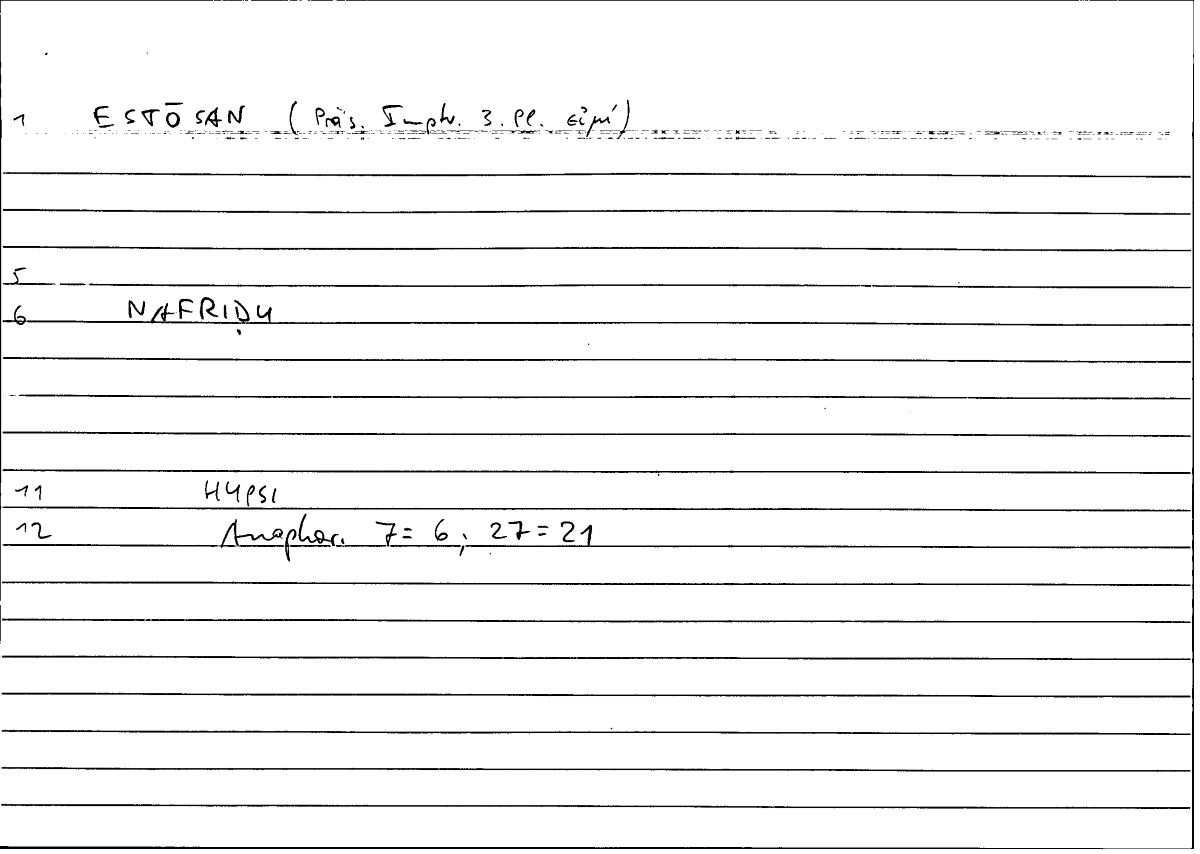 1 ESTŌSAN (Präs. Imptv. 3. Pl. εἰμί)
5
6 NAFRIḌU
11 HYPSI
12 Anaphor. 7 = 6; 27 = 21